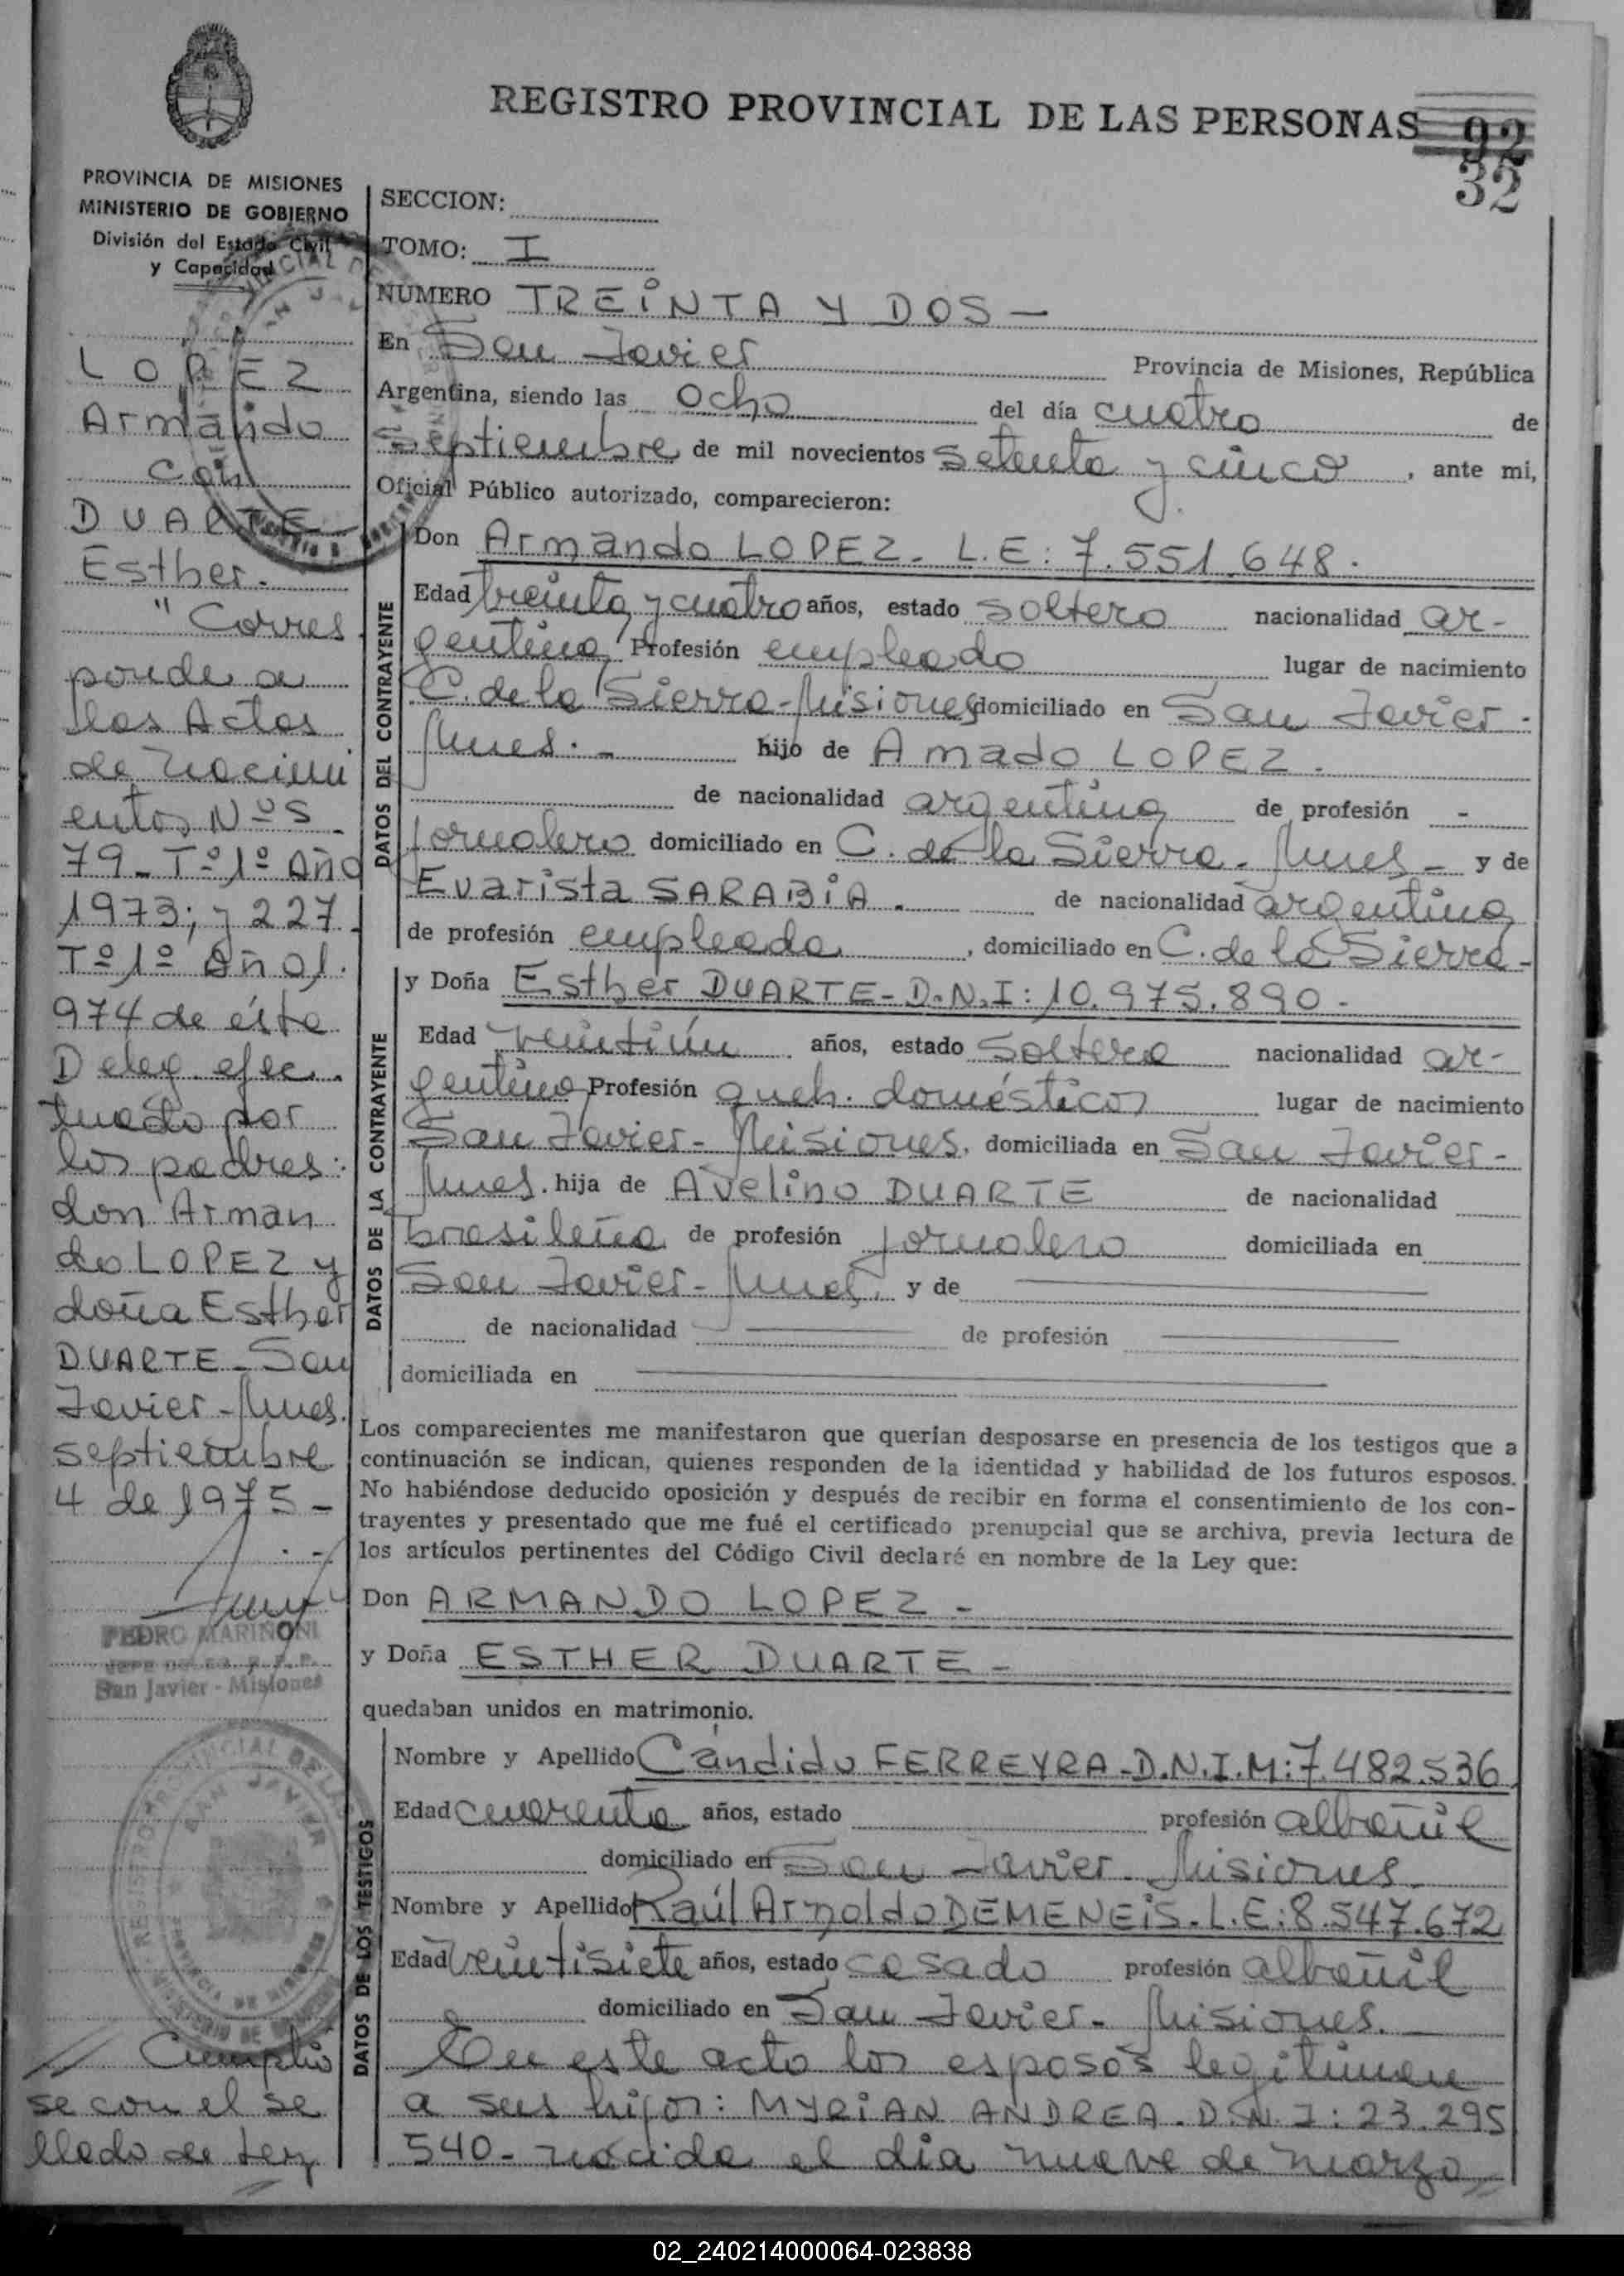 REGISTRO PROVINCIAL DE LAS PERSONAS
92
32
PROVINCIA DE MISIONES
MINISTERIO DE GOBIERNO
División del Estado Civil
y Capacidad
LOPEZ
Armando
con
DUARTE
Esther.
"Corres
ponde a
las Actas
de Nacimi
entos Nºs
79-Tº1º Año
1973; y 227
Tº1º Año 1.
974 de ésta
Deleg. efec.
tuado por
los padres:
don Arman
do LOPEZ y
doña Esther
DUARTE-San
Javier-Mnes.
septiembre
4 de 1975-
PEDRO MARIÑONI
San Javier - Misiones
// Cumplió
se con el se
llado de Ley
SECCION:
TOMO: I
NUMERO TREINTA Y DOS -
En San Javier Provincia de Misiones, República
Argentina, siendo las ocho del día cuatro de
septiembre de mil novecientos setenta y cinco, ante mi,
Oficial Público autorizado, comparecieron:
DATOS DEL CONTRAYENTE
Don Armando LOPEZ. L.E: 7.551.648.
Edad treinta y cuatro años, estado soltero nacionalidad ar-
gentina Profesión empleado lugar de nacimiento
C. de la Sierra-Misiones domiciliado en San Javier-
Mnes.- hijo de Amado LOPEZ.
de nacionalidad argentina de profesión -
jornalero domiciliado en C. de la Sierra. Mnes- y de
Evarista SARABIA. de nacionalidad argentina
de profesión empleada, domiciliado en C. de la Sierra-
DATOS DE LA CONTRAYENTE
y Doña Esther DUARTE-D.N.I: 10.975.890-
Edad veintiún años, estado soltera nacionalidad ar-
gentina Profesión queh. domésticos lugar de nacimiento
San Javier-Misiones, domiciliada en San Javier-
Mnes. hija de Avelino DUARTE de nacionalidad
brasileña de profesión jornalero domiciliada en
San Javier-Mnes. y de
de nacionalidad de profesión
domiciliada en
Los comparecientes me manifestaron que querían desposarse en presencia de los testigos que a
continuación se indican, quienes responden de la identidad y habilidad de los futuros esposos.
No habiéndose deducido oposición y después de recibir en forma el consentimiento de los con-
trayentes y presentado que me fué el certificado prenupcial que se archiva, previa lectura de
los artículos pertinentes del Código Civil declaré en nombre de la Ley que:
Don ARMANDO LOPEZ-
y Doña ESTHER DUARTE-
quedaban unidos en matrimonio.
DATOS DE LOS TESTIGOS
Nombre y Apellido Cándido FERREYRA-D.N.I.M:7.482.536
Edad cuarenta años, estado profesión albañil
domiciliado en San Javier-Misiones.
Nombre y Apellido Raúl Arnoldo DEMENEIS. L.E: 8.547.672
Edad veintisiete años, estado casado profesión albañil
domiciliado en San Javier-Misiones.
En este acto los esposos legitiman
a sus hijos: MYRIAN ANDREA. D.N.I: 23.295
540- nacida el día nueve de marzo//
02_240214000064-023838